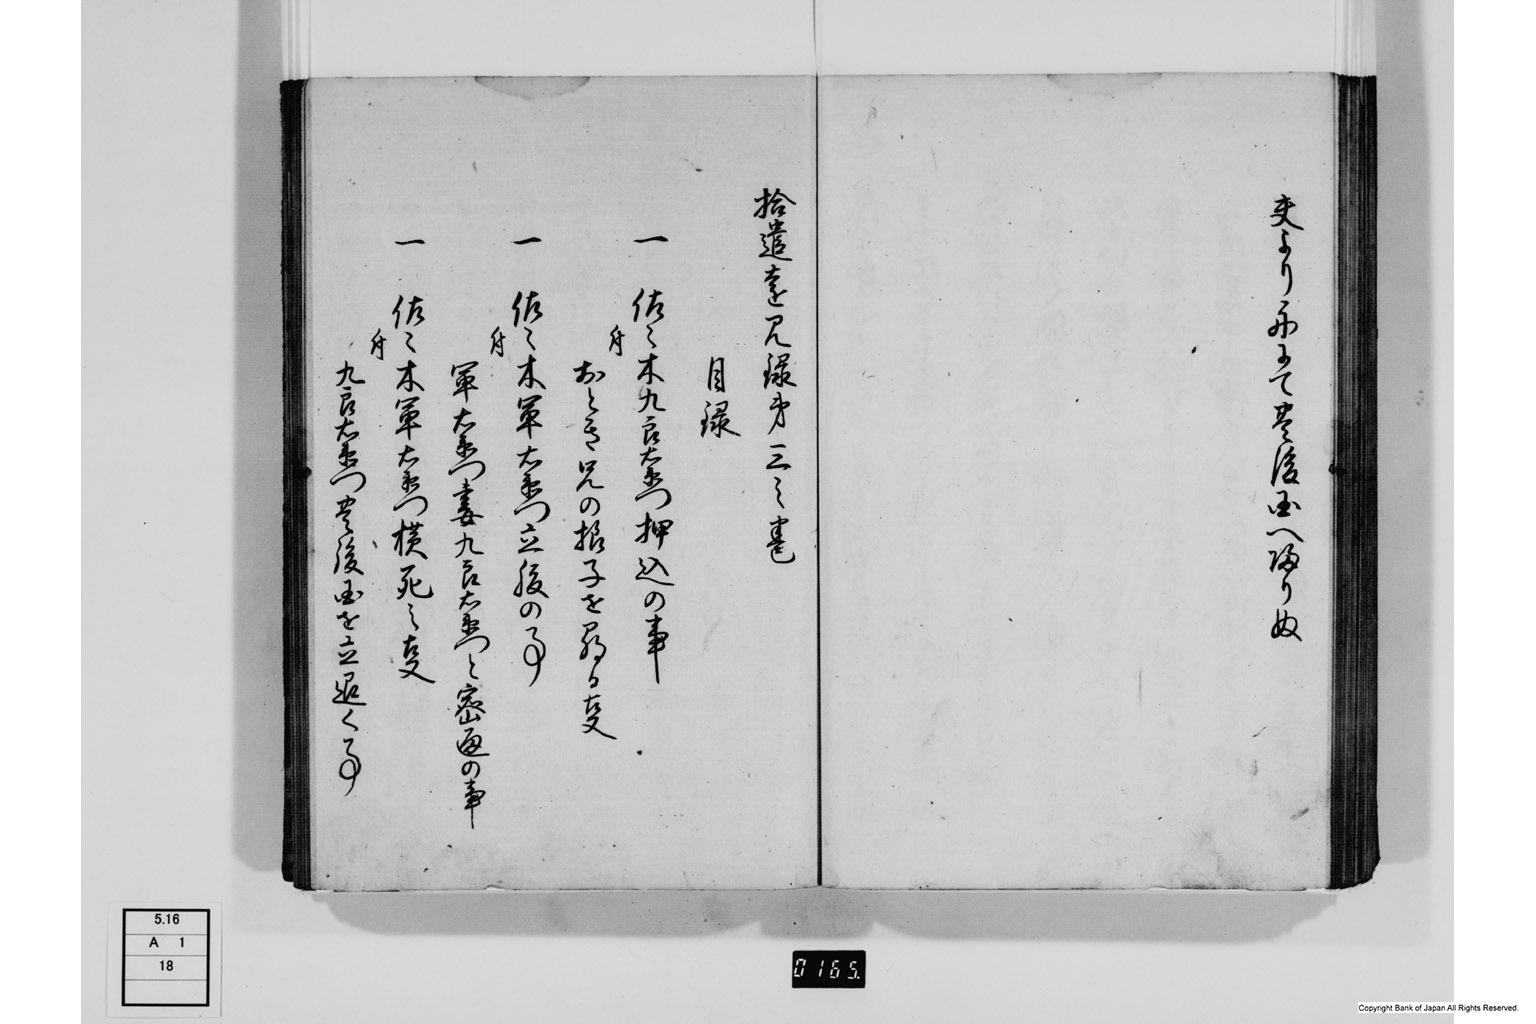 夫より舟にて豊後国へ帰りぬ
拾遺遠見録第三之巻
目録
一 佐々木九郎右衛門押込の事
付
おとき兄の振子を尋る事
一 佐々木軍右衛門立腹の事
付
軍右衛門妻九郎右衛門と密通の事
一 佐々木軍右衛門横死之事
付
九郎右衛門豊後国を立退く事
5.16
A 1
18
0165.
Copyright Bank of Japan All Rights Reserved.